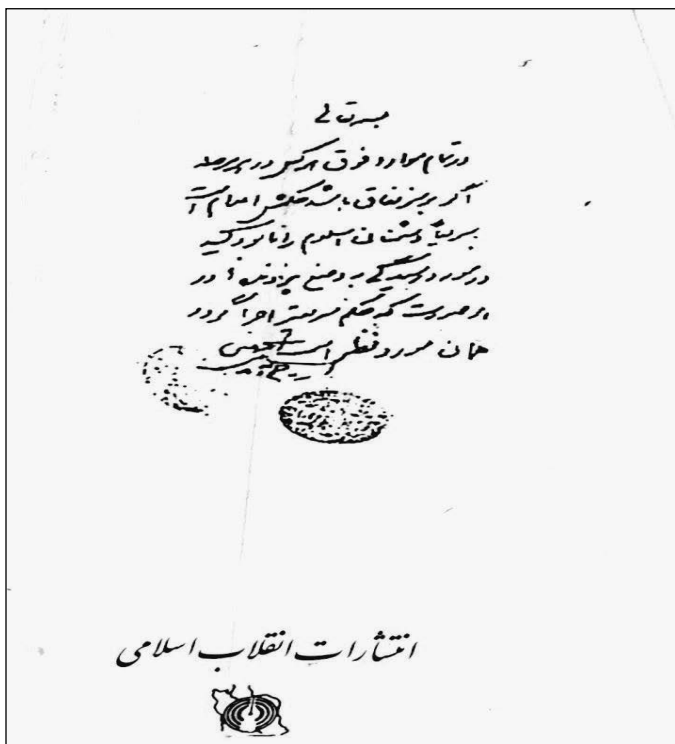 بسمه تعالی
در تمام موارد فوق هر کس در هر مرحله
اگر بر سر نفاق باشد حکمش اعدام است
سریعاً دشمنان اسلام را نابود کنید
در مورد رسیدگی به وضع پرونده‌ها در
هر صورت که حکم سریعتر اجرا گردد
همان مورد نظر است
انتشارات انقلاب اسلامی